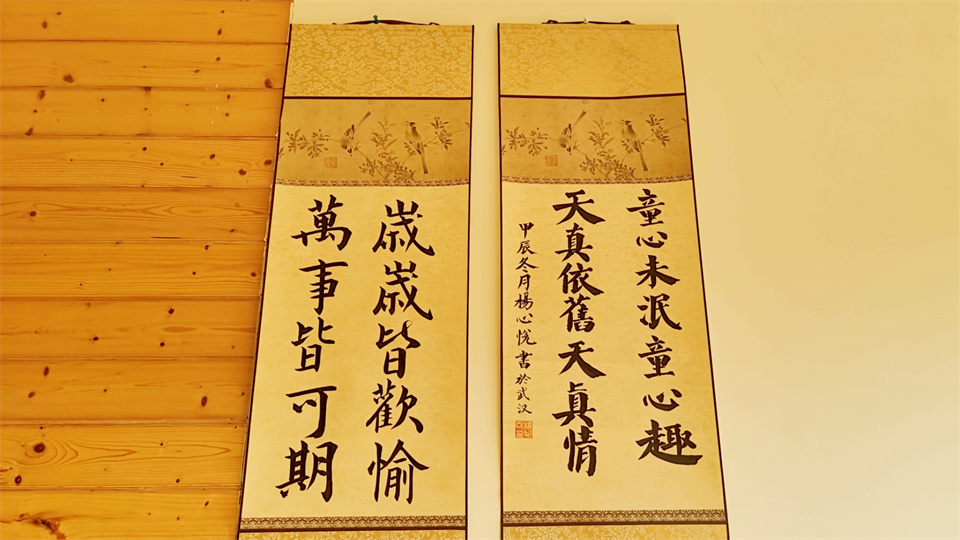 童心未泯童心趣
天真依舊天真情
甲辰冬月楊心悅書於武汉
嵗嵗皆歡愉
萬事皆可期